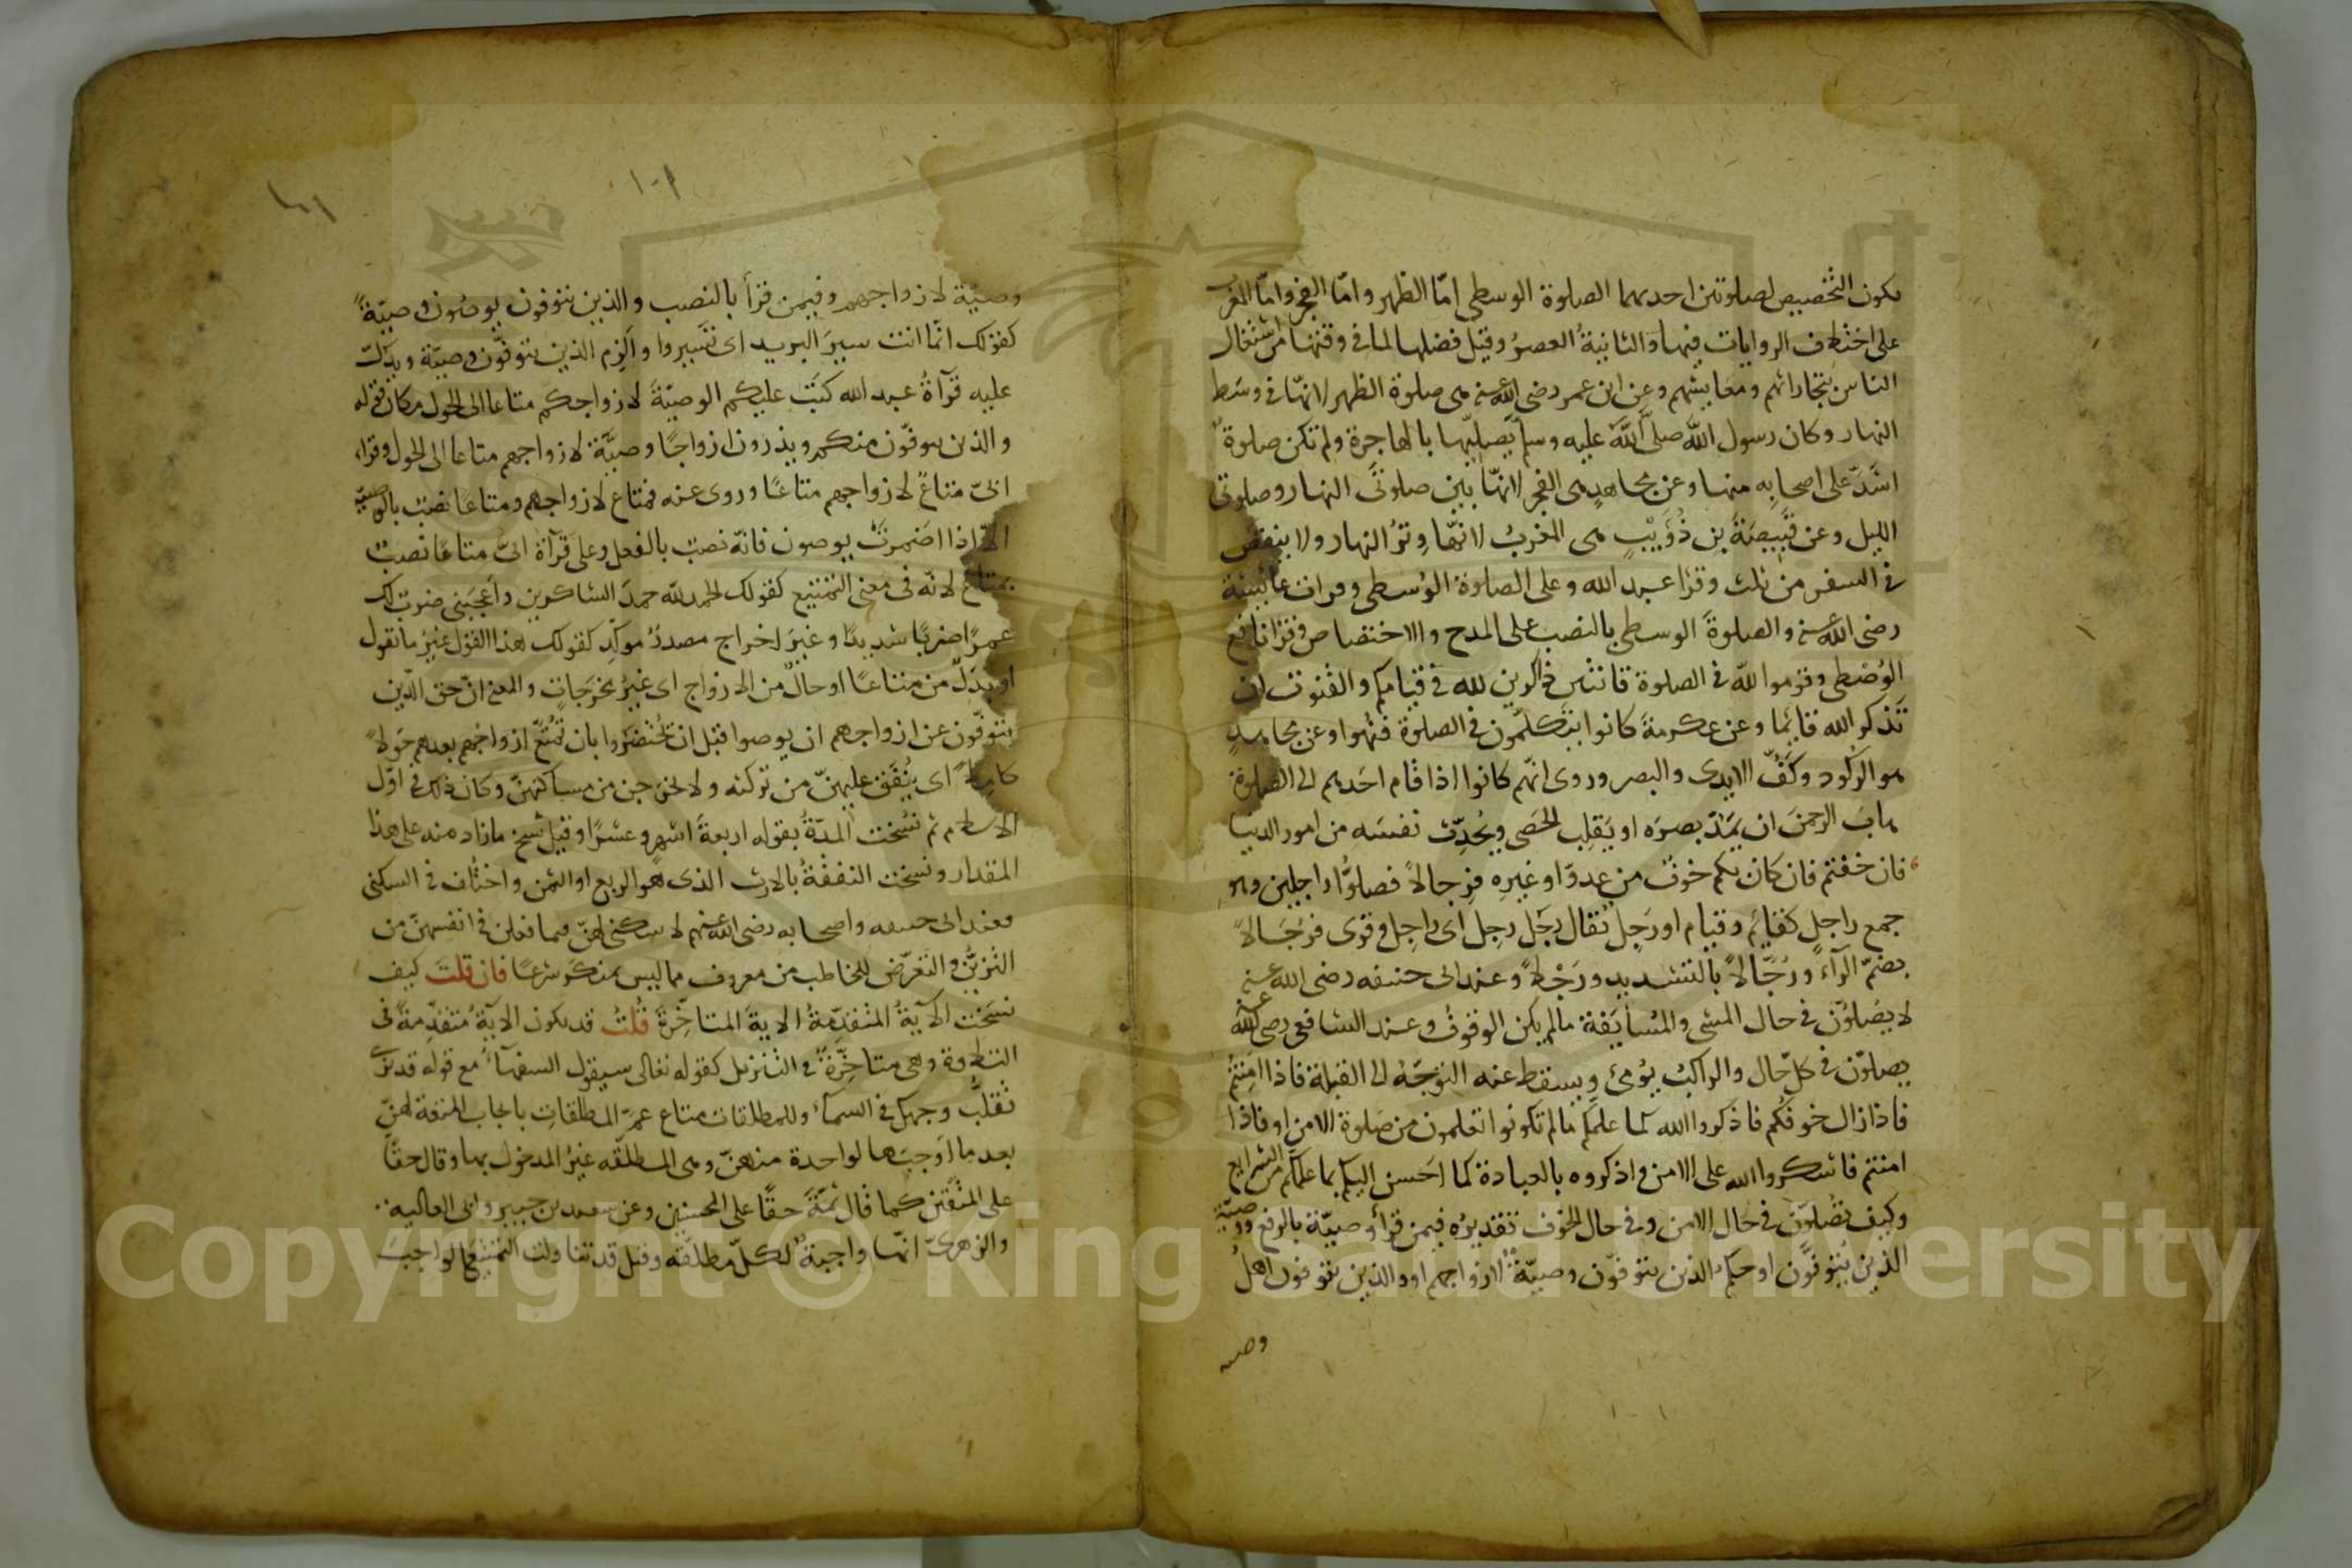 يكون التخصيص لصلوتين احديهما الصلوة الوسطى امّا الظهر وامّا الفجر وامّا المغرب
على اختلاف الروايات فيها والثانيةُ العصرُ وقيل فضلها لما في وقتها من اشتغال
الناس بتجاراتهم ومعايشهم وعن ابن عمر رضى الله عنه هى صلوة الظهر لانّها في وسَط
النهار وكان رسول الله صلى الله عليه وسلم يُصلّيها بالهاجرة ولم تكن صلوةٌ
اشَدَّ على اصحابِه منها وعن مجاهدٍ هى الفجر لانّها بين صلوتَى النهار وصلوتَى
الليل وعن قَبِيصَةَ بن ذُؤَيْبٍ هى المغربُ لانّها وِترُ النهار ولا ينقص
في السفر من ثلث وقرا عبد الله وعلى الصلوة الوُسطى وقرات عائشة
رضى الله عنه والصلوةَ الوسطى بالنصب على المدح والاختصاص وقرا نافع
الوُصْطى وقوموا لله في الصلوة قانتين ذاكرين لله في قيامكم والقنوت ان
تَذكر الله قائما وعن عكرمةَ كانوا يتكلّمون في الصلوة فنُهوا وعن مجاهدٍ
هو الرُكود وكَفُّ الايدى والبصر وروى انّهم كانوا اذا قام احَدهم الى الصلوة
هابَ الرحمنَ ان يَمُدَّ بصرَه او يَقلِب الحصَى ويُحَدِّث نفسَه من امور الدنيا
فان خفتم فان كان بكم خوفٌ من عدوّ او غيرِه فرِجالاً فصلوُّا راجلين وهو
جمع راجل كقائم وقيام او رَجِل يُقال رجَل رجِل اى راجِل وقرى فرُجَالاً
بضمّ الرآء ورُجَّالاً بالتشديد ورَجْلاً وعند ابى حنيفه رضى الله عنه
لا يصُلوُّن في حال المشى والمُسايَفة ما لم يكن الوقوفُ وعند الشافعى رضى الله عنه
يصلوّن في كلّ حَال والراكبُ يُومئ ويسقط عنه التوجّهُ الى القبلة فاذا امِنتُم
فاذا زال خوفكُم فاذكروا الله كما علمكم ما لم تكونوا تعلمون من صَلوة الامنِ او فاذا
امنتم فاشكروا الله على الامن واذكروه بالعبادة كما احَسن اليكم بما علّمكم من الشرايع
وكيف تُصَلوّن في حَال الامن وفي حال الخوف تقديرُه فيمن قرأ وصيّة بالرفع ووصيّة
الذين يُتوفوَّن او حكم الذين يتوفوّن وصيّةٌ لازواجهم او والذين يتوفون اهلُ
وصيه
١٠١
١٠٢
وصيَّة لازواجهم وفيمن قرأ بالنصب والذين يتوفون يوصُون وصيّةً
كقولك انّما انت سيرَ البريد اى تَسيروا والَزِم الذين يتوفوّن وصيّة ويدُلّ
عليه قرآةُ عبد الله كُتِبَ عليكم الوصيّةَ لازواجكم متاعا الى الحول مكان قوله
والذين يتوفّون منكم ويذرون ازواجًا وصيَّة لازواجهم متاعا الى الحول وقراء
ابىّ متاعٌ لازواجهم متاعًا وروى عنه فمتاع لازواجهم ومتاعًا نصب بالوصيّة
الاّ اذا اضمرتَ يوصون فانّه نصب بالفعل وعلى قرآة ابىّ متاعًا نصب
بمتاع لانّه في معنى التمتيع كقولك الحمد لله حمدَ الشاكرين واَعجَبنى ضرب لك
عمرًا ضربًا شديدًا وغيرَ اخراج مصدرٌ موكِّد كقولك هذا القول غيرُ ما تقول
او بدَلٌ من متاعًا او حالٌ من الازواج اى غيرُ مخرجَاتٍ والمعنى انّ حق الّذين
يتوفّون عن ازواجهم ان يوصوا قبل ان يُحْتضَروا بان تُمَتَّعَ ازواجهم بعدهم حَولاً
كاملاً اى يُنفَق عليهنّ من تركته ولا يخرجن من مساكنهنّ وكان ذلك في اوّل
الاسلام ثم نسُخت المدّةُ بقوله اربعةَ اشهرٍ وعشرًا وقيل نُسخ ما زاد منه على هذا
المقدار ونسُخت النفقةُ بالارث الذى هو الربع او الثمن واختُلف في السكنى
فعند ابى حنيفه واصحابه رضى الله عنهم لا سكنى لهنّ فيما فعلن في انفسهنّ من
التزيُّن والتعرّض للخاطب من معروف مما ليس بمنكَر شرعًا فان قلتَ كيف
نسَخت الآيةُ المتقدِّمةُ الايةَ المتاخِّرةَ قُلتُ قد يكون الآيةُ متقدّمةً في
التلاوة وهى متاخِّرةٌ في التنزيل كقوله تعالى سيقول السفهآءُ مع قوله قد نرى
تقلُّبَ وجهك في السمآء وللمطلقات متاع عمَّ المطلقاتِ بايجاب المتعة لهنّ
بعد ما اوَجبَها لواحدة منهنّ وهى المطلّقه غيرُ المدخول بها وقال حقًا
على المتّقين كما قال ثمَّةَ حقًا على المحسنين وعن سعيد بن جبير وابى العاليه
والزهرىّ انّها واجبةٌ لكلّ مطلقَه وقيل قد تناولت التمتيعَ الواجبَ
Copyright © King Saud University